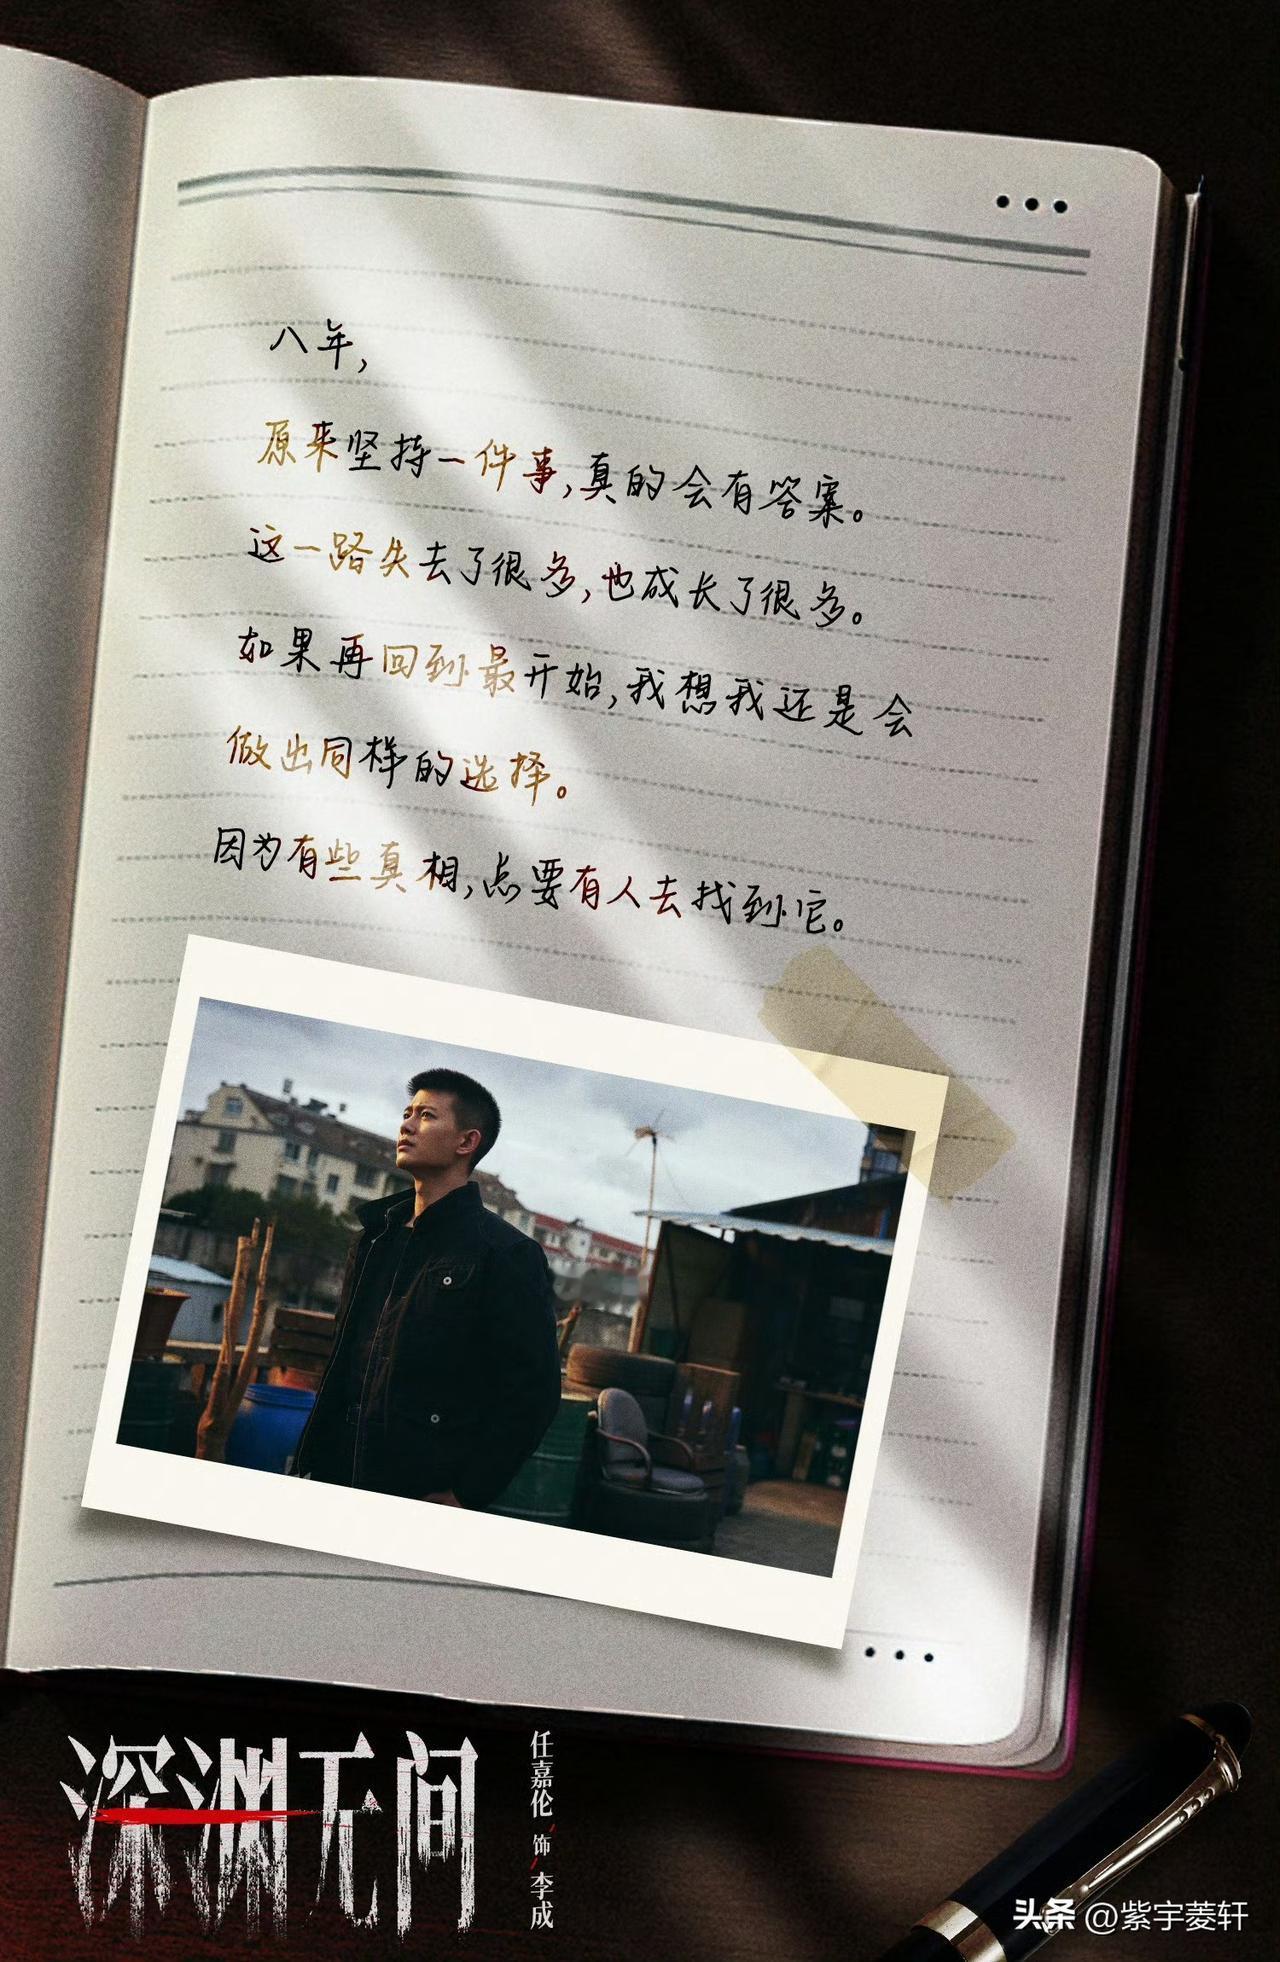 八年，
原来坚持一件事，真的会有答案。
这一路失去了很多，也成长了很多。
如果再回到最开始，我想我还是会
做出同样的选择。
因为有些真相，总要有人去找到它。
深渊无间
任嘉伦 饰 李成
头条 @紫宇菱轩